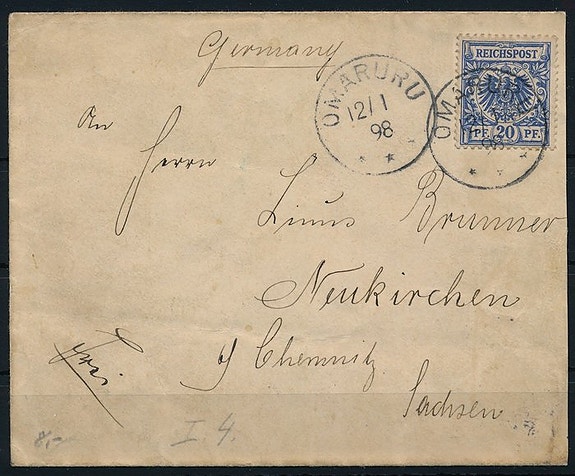 Germany
REICHSPOST
PF. 20 PF.
OMARURU
12/1
98
An
Herrn
Linus Brunner
Neukirchen
b/ Chemnitz
Sachsen
Frei
I 4.